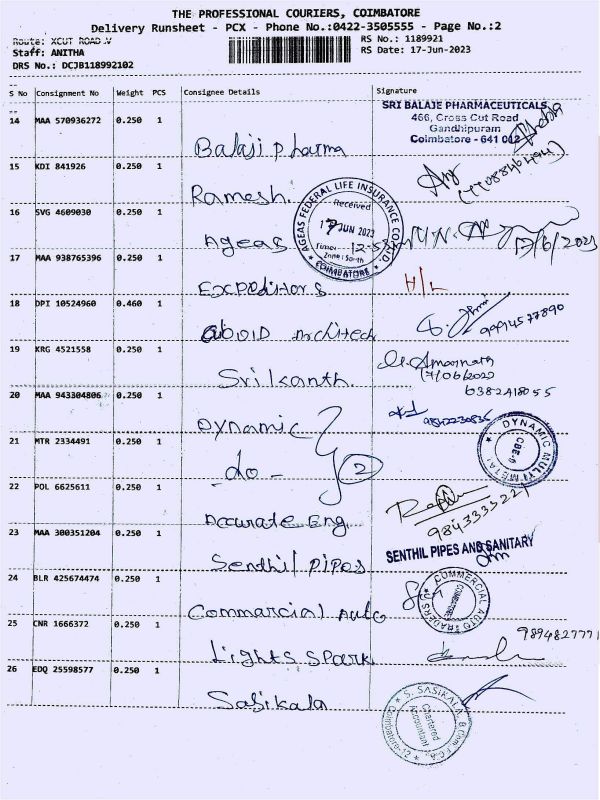 THE PROFESSIONAL COURIERS, COIMBATORE
Delivery Runsheet - PCX - Phone No.:0422-3505555 - Page No.:2
Route: XCUT ROAD .V
RS No.: 1189921
Staff: ANITHA
RS Date: 17-Jun-2023
DRS No.: DCJB118992102
S No Consignment No Weight PCS Consignee Details Signature
14 MAA 570936272 0.250 1
Balaji Pharma
SRI BALAJE PHARMACEUTICALS
466, Cross Cut Road
Gandhipuram
Coimbatore - 641 012
15 KDI 841926 0.250 1
Ramesh.
16 SVG 4609030 0.250 1
Ageas
AGEAS FEDERAL LIFE INSURANCE CO. LTD.
Received
17 JUN 2023
Time:
Zone : South
COIMBATORE
17/6/2023
17 MAA 938765396 0.250 1
Expeditors
H/L
18 DPI 10524960 0.460 1
Architech
9994577890
19 KRG 4521558 0.250 1
Srikanth.
Amarnath
17/06/2023
6382418055
20 MAA 943304806 0.250 1
Dynamic
DYNAMIC MULTI METAL
CBE-6
21 MTR 2334491 0.250 1
-do- 2
22 POL 6625611 0.250 1
Accurate Eng.
9843333221
23 MAA 300351204 0.250 1
Senthil Pipes
SENTHIL PIPES AND SANITARY
24 BLR 425674474 0.250 1
Commercial Auto
COMMERCIAL AUTO TRADERS
COIMBATORE
25 CNR 1666372 0.250 1
Lights Spark
9894827771
26 EDQ 25598577 0.250 1
Sasikala
S. SASIKALA, B.Com.F.C.A
Chartered
Accountant
Coimbatore-12